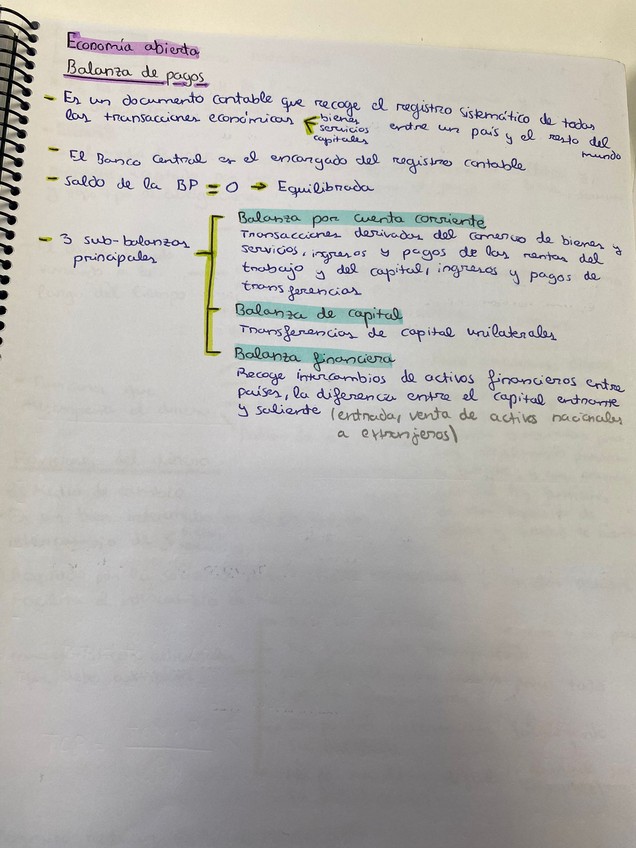 Economía abierta
Balanza de pagos
- Es un documento contable que recoge el registro sistemático de todas
las transacciones económicas ← bienes servicios capitales entre un país y el resto del
mundo
- El Banco Central es el encargado del registro contable
- Saldo de la BP = 0 → Equilibrada
- 3 sub-balanzas
principales
Balanza por cuenta corriente
Transacciones derivadas del comercio de bienes y
servicios, ingresos y pagos de las rentas del
trabajo y del capital, ingresos y pagos de
transferencias
Balanza de capital
Transferencias de capital unilaterales
Balanza financiera
Recoge intercambios de activos financieros entre
países, la diferencia entre el capital entrante
y saliente (entrada, venta de activos nacionales
a extranjeros)